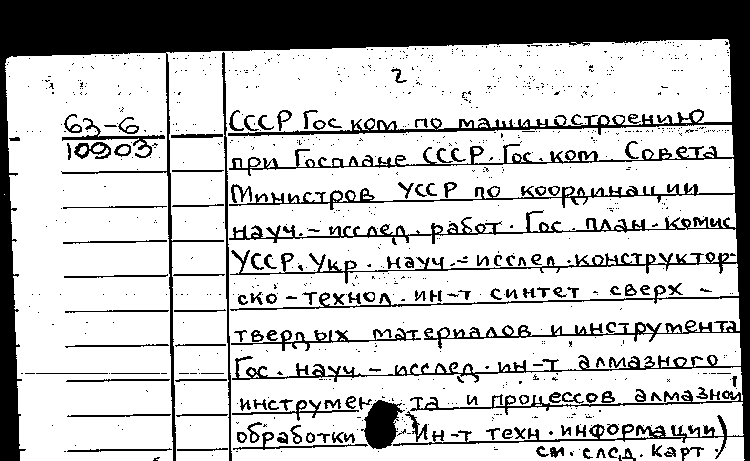 2
63-6
10903
СССР Гос ком по машиностроению
при Госплане СССР. Гос. ком. Совета
Министров УССР по координации
науч.-исслед. работ. Гос. план. комис
УССР. Укр. науч.-исслед. конструктор-
ско-технол. ин-т синтет. сверх-
твердых материалов и инструмента
Гос. науч.-исслед. ин-т алмазного
инструмента и процессов алмазной
обработки (Ин-т техн. информации)
см. след. карт.